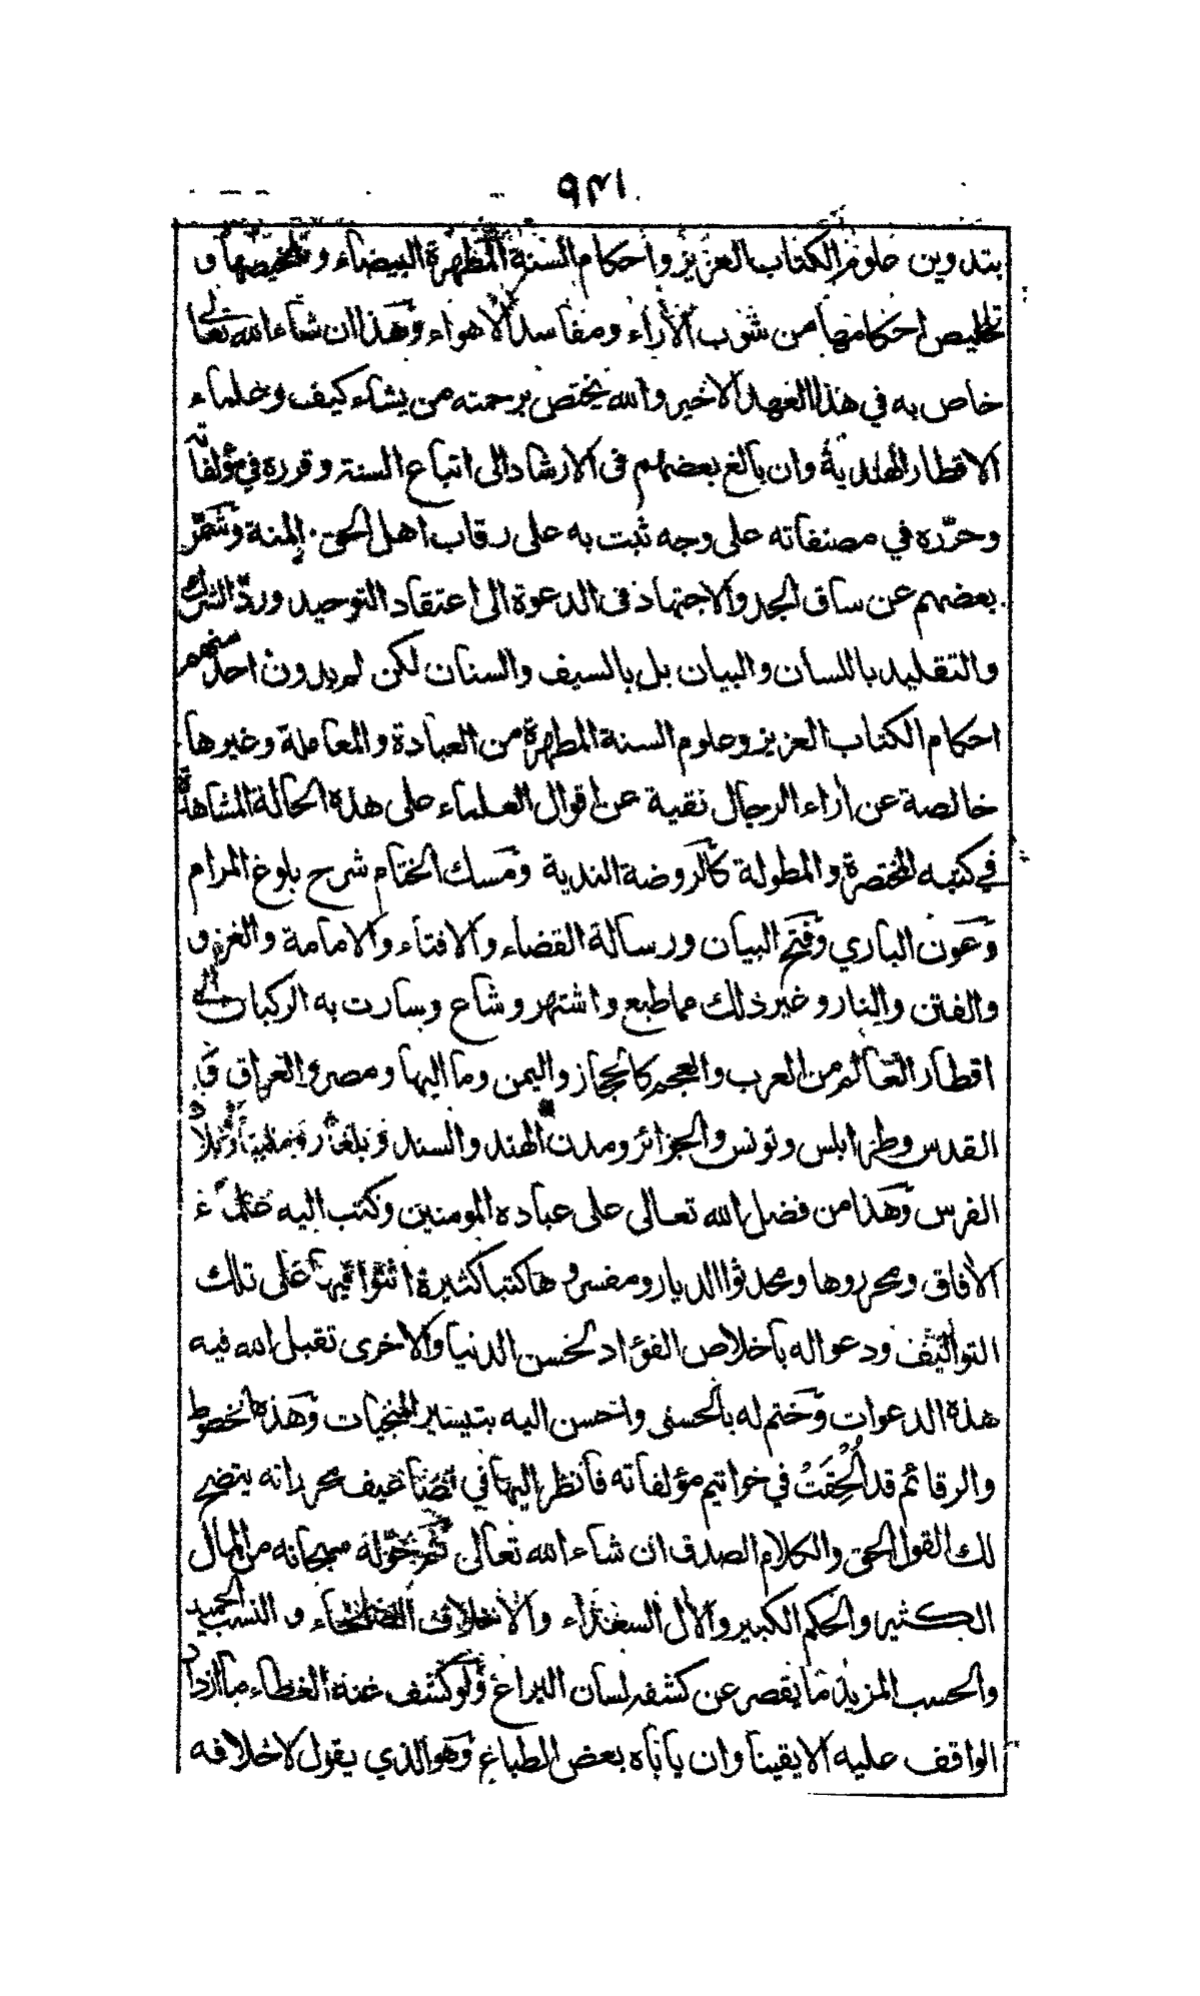 ٩٣١
بتدوين علوم الكتاب العزيز واحكام السنة المطهرة البيضاء وتلخيصها و
تخليص احكامها من شوب الأراء ومفاسد الاهواء وهذا ان شاء الله تعالى
خاص به في هذا العهد الاخير والله يختص برحمته من يشاء كيف وعلماء
الاقطار الهندية وان بالغ بعضهم فى الارشاد الى اتباع السنة وقرره في مؤلفاته
وحرّره في مصنفاته على وجه ثبت به على رقاب اهل الحق المنة وشمّر
بعضهم عن ساق الجد والاجتهاد فى الدعوة الى اعتقاد التوحيد وردّ الشرك
والتقليد باللسان والبيان بل بالسيف والسنان لكن لم يدون احد منهم
احكام الكتاب العزيز وعلوم السنة المطهرة من العبادة والمعاملة وغيرها
خالصة عن أراء الرجال نقية عن اقوال العلماء على هذه الحالة المشاهدة
في كتبه المختصرة والمطولة كالروضة الندية ومسك الختام شرح بلوغ المرام
وعون الباري وفتح البيان ورسالة القضاء والافتاء والامامة والغزو
والفتن والنار وغير ذلك مما طبع واشتهر وشاع وسارت به الركبان الى
اقطار العالم من العرب والعجم كالحجاز واليمن وما اليها ومصر والعراق و
القدس وطرابلس وتونس والجزائر ومدن الهند والسند وبلغار
الفرس وهذا من فضل الله تعالى على عباده المومنين وكتب اليه علماء
الأفاق ومحرروها ومحدثوا الديار ومفسروها كتبا كثيرة اثنوا فيها على تلك
التواليف ودعوا له باخلاص الفؤاد لحسن الدنيا والاخرى تقبل الله فيه
هذه الدعوات وختم له بالحسنى واحسن اليه بتيسير المنجيات وهذه الخطوط
والرقائم قد اُلْحِقَتْ في خواتيم مؤلفاته فانظر اليها في تضاعيف محرراته يتضح
لك القول الحق والكلام الصدق ان شاء الله تعالى ثم خوّله سبحانه من المال
الكثير والحكم الكبير والأل السعداء والاخلاف الصلحاء والنسب الحميد
والحسب المزيد ما يقصر عن كشفه لسان اليراع ولو كشف عنه الغطاء ما ازداد
الواقف عليه الا يقينا وان يأباه بعض الطباع وهو الذي يقول لاخلافه